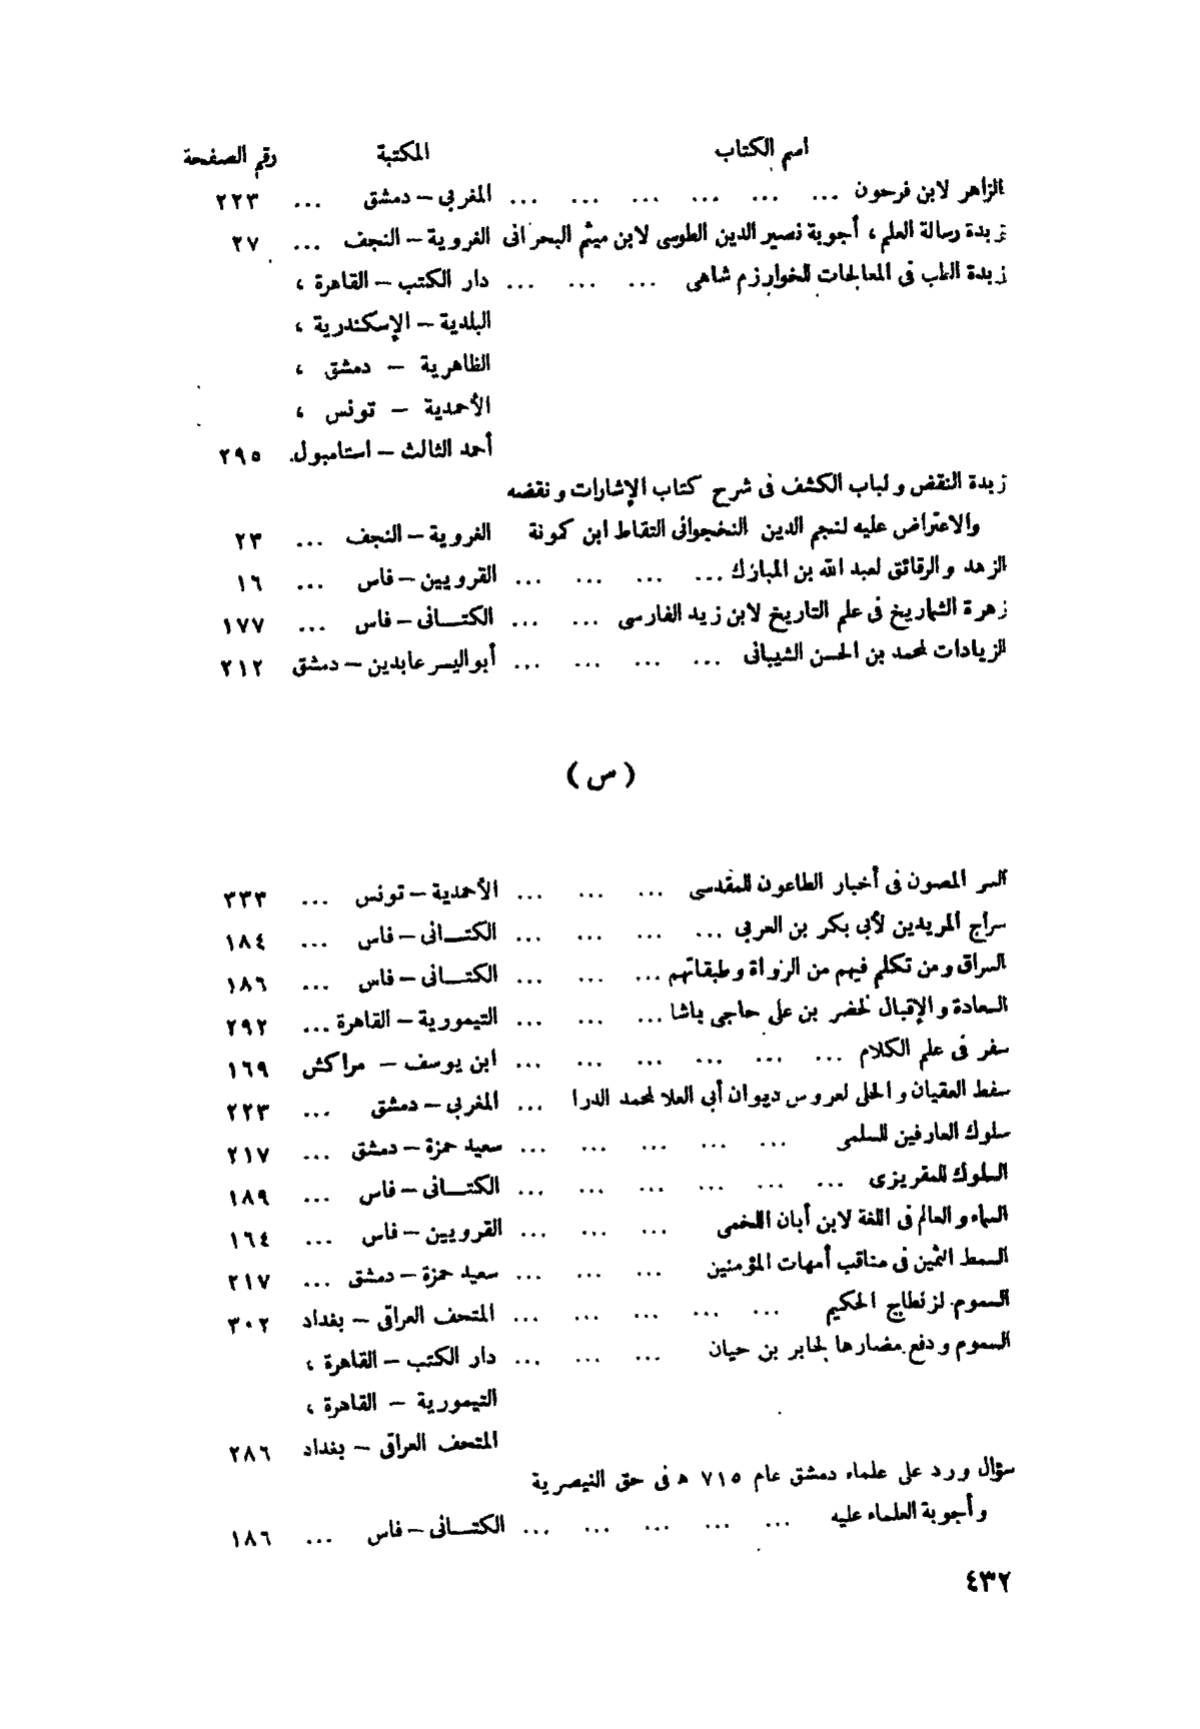 اسم الكتاب المكتبة رقم الصفحة
الزاهر لابن فرحون ... ... ... ... ... ... المغربى – دمشق ... ٢٢٣
زبدة رسالة العلم ، أجوبة نصير الدين الطوسى لابن ميثم البحرانى الغروية – النجف ... ٢٧
زبدة الطب فى المعالجات للخوارزم شاهى ... ... ... دار الكتب – القاهرة ،
البلدية – الإسكندرية ،
الظاهرية – دمشق ،
الأحمدية – تونس ،
أحمد الثالث – استامبول. ٢٩٥
زبدة النقض ولباب الكشف فى شرح كتاب الإشارات ونقضه
والاعتراض عليه لنجم الدين النخجوانى التقاط ابن كمونة الغروية – النجف ... ٢٣
الزهد والرقائق لعبد الله بن المبارك ... ... ... ... القرويين – فاس ... ١٦
زهرة الشماريخ فى علم التاريخ لابن زيد الفارسى ... ... الكتـــانى – فاس ... ١٧٧
الزيادات لمحمد بن الحسن الشيبانى ... ... ... ... أبو اليسر عابدين – دمشق ٢١٢
( س )
السر المصون فى أخبار الطاعون للمقدسى ... ... ... الأحمدية – تونس ... ٣٣٣
سراج المريدين لأبى بكر بن العربى ... ... ... ... الكتـــانى – فاس ... ١٨٤
السراق ومن تكلم فيهم من الرواة وطبقاتهم ... ... ... الكتـــانى – فاس ... ١٨٦
السعادة والإقبال لخضر بن على حاجى باشا ... ... ... التيمورية – القاهرة ... ٢٩٢
سفر فى علم الكلام ... ... ... ... ... ... ابن يوسف – مراكش ١٦٩
سفط العقيان والحلى لعروس ديوان أبى العلا لمحمد الدرا ... المغربى – دمشق ... ٢٢٣
سلوك العارفين للسلمى ... ... ... ... ... سعيد حمزة – دمشق ... ٢١٧
السلوك للمقريزى ... ... ... ... ... ... الكتـــانى – فاس ... ١٨٩
السماء والعالم فى اللغة لابن أبان اللخمى ... ... ... القرويين – فاس ... ١٦٤
السمط الثمين فى مناقب أمهات المؤمنين ... ... ... سعيد حمزة – دمشق ... ٢١٧
السموم لزنطاح الحكيم ... ... ... ... ... المتحف العراقى – بغداد ٣٠٢
السموم ودفع مضارها لجابر بن حيان ... ... ... دار الكتب – القاهرة ،
التيمورية – القاهرة ،
المتحف العراقى – بغداد ٢٨٦
سؤال ورد على علماء دمشق عام ٧١٥ ه فى حق النيصرية
وأجوبة العلماء عليه ... ... ... ... ... الكتـــانى – فاس ... ١٨٦
٤٣٢